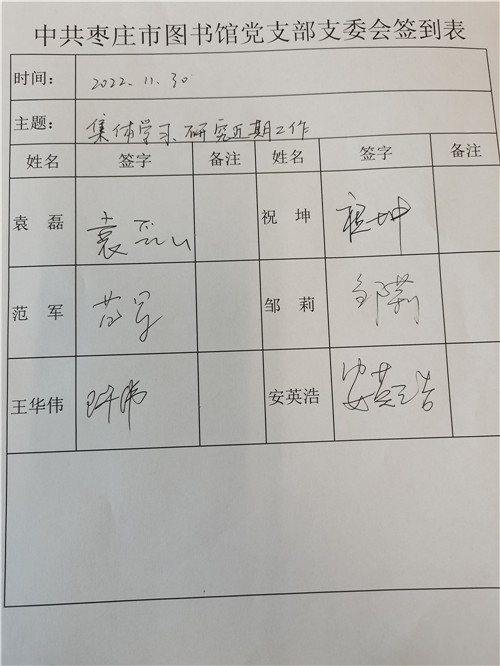 中共枣庄市图书馆党支部支委会签到表
时间： 2022.11.30
主题： 集体学习、研究近期工作
姓名 签字 备注 姓名 签字 备注
袁磊 袁磊 祝坤 祝坤
范军 范军 邹莉 邹莉
王华伟 王华伟 安英浩 安英浩